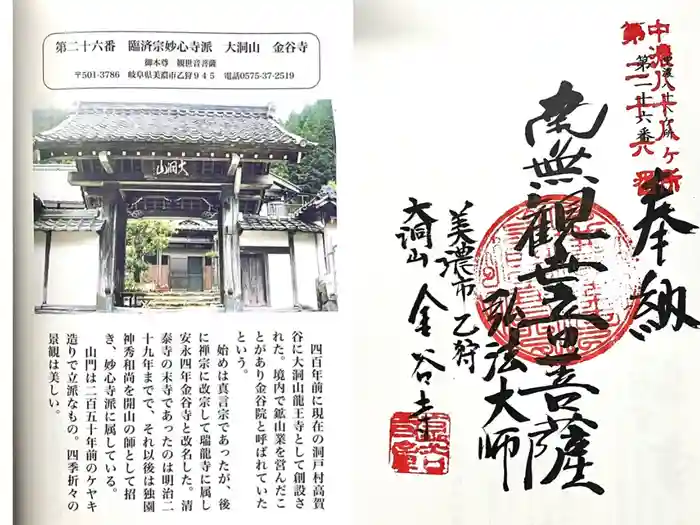 第二十六番　臨済宗妙心寺派　大洞山　金谷寺
御本尊　観世音菩薩
〒501-3786　岐阜県美濃市乙狩９４５　電話0575-37-2519
大洞山
四百年前に現在の洞戸村高賀
谷に大洞山龍王寺として創設さ
れた。境内で鉱山業を営んだこ
とがあり金谷院と呼ばれていた
という。
始めは真言宗であったが、後
に禅宗に改宗して瑞龍寺に属し
安永四年金谷寺と改名した。清
泰寺の末寺であったのは明治二
十九年までで、それ以後は独園
神秀和尚を開山の師として招
き、妙心寺派に属している。
山門は二百五十年前のケヤキ
造りで立派なもの。四季折々の
景観は美しい。
中濃八十八ヶ所
第二十六番
奉納
南無観世音菩薩
弘法大師
美濃市乙狩
大洞山　金谷寺